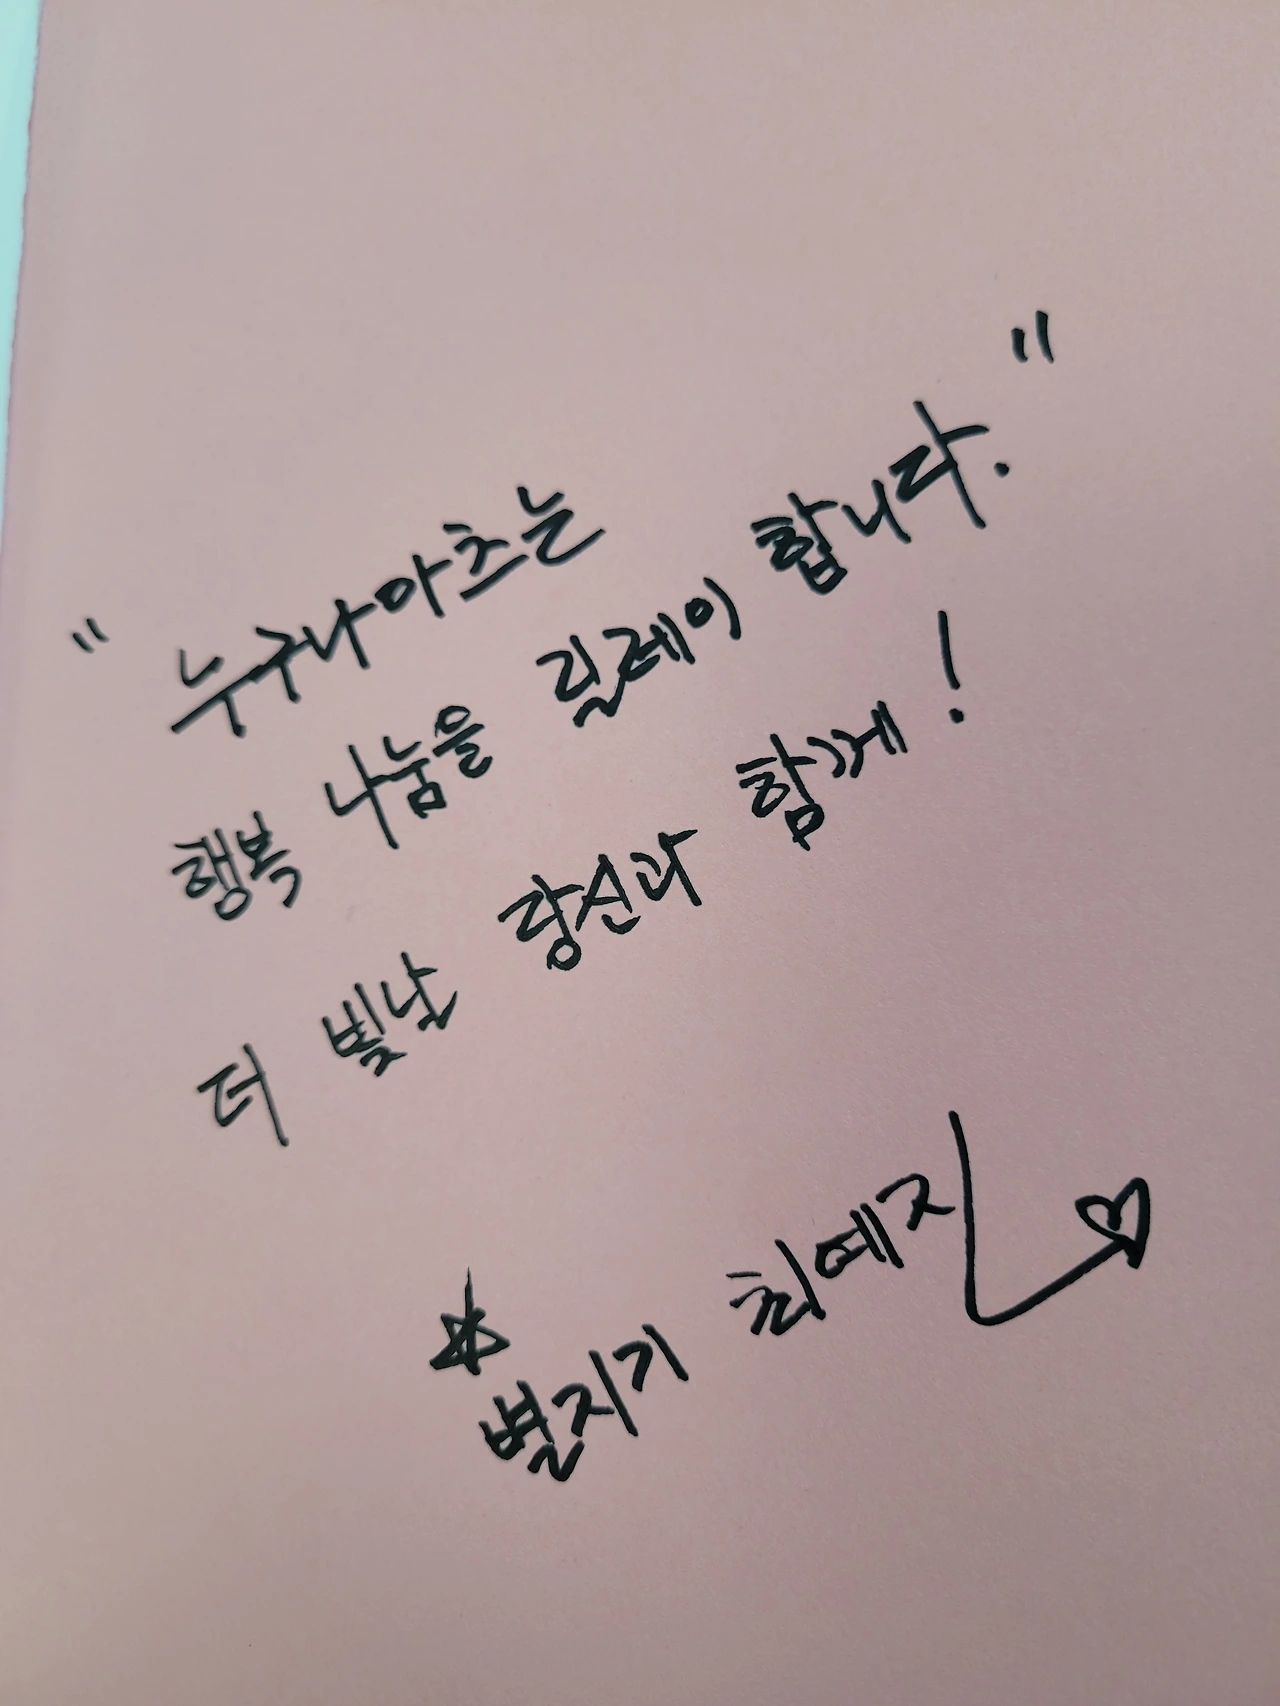 "누구나아츠는
행복 나눔을 릴레이 합니다."
더 빛난 당신과 함께!
별지기 최예지